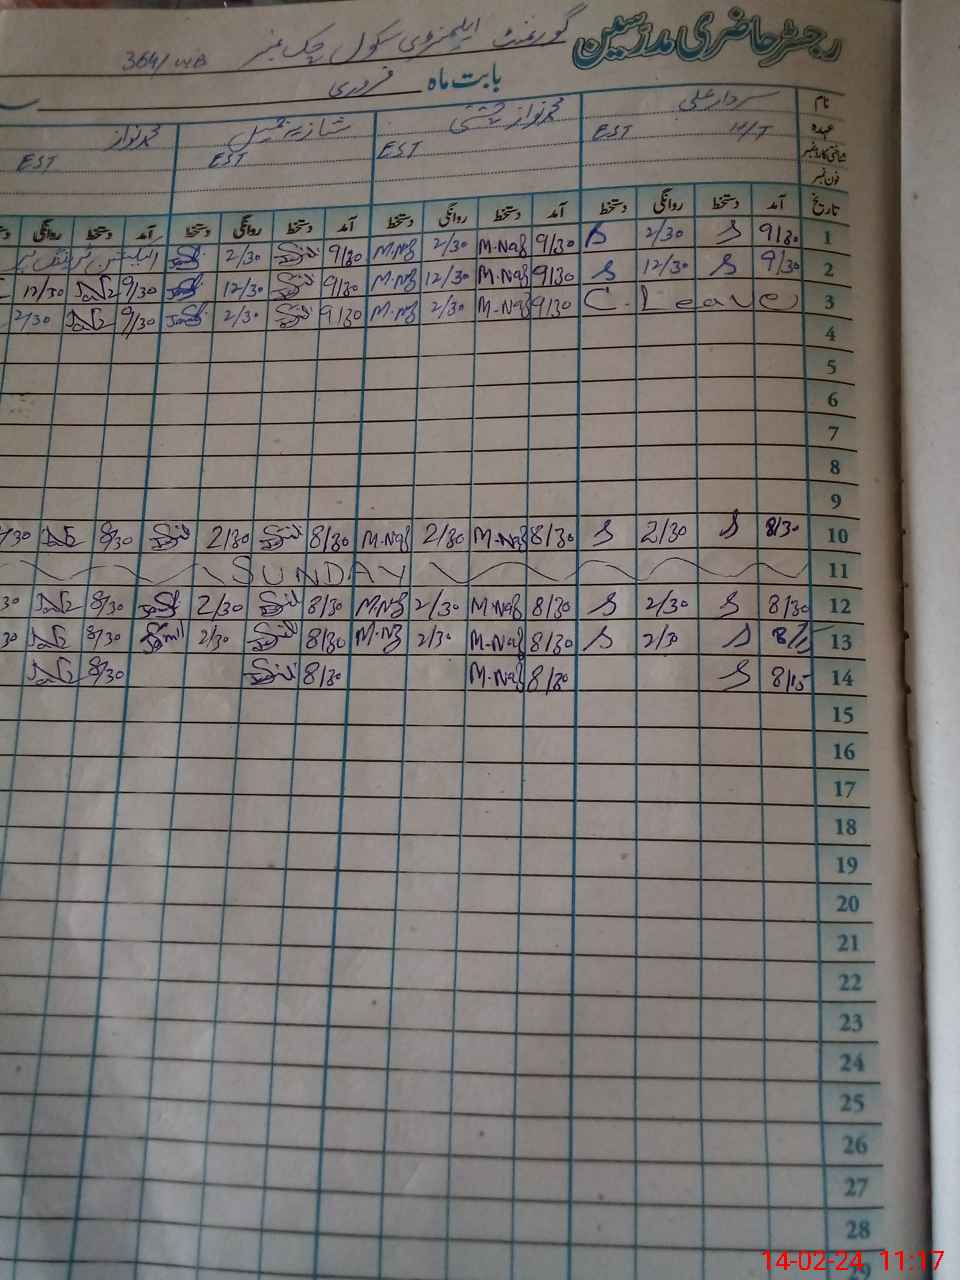 رجسٹر حاضری مدرسین گورنمنٹ ایلیمنٹری سکول چک نمبر 364/WB
بابت ماہ فروری
نام سردار علی محمد نواز چشتی شازیہ محمد نواز
عہدہ H/T EST EST EST EST
شناختی کارڈ نمبر
فون نمبر
تاریخ آمد دستخط روانگی دستخط آمد دستخط روانگی دستخط آمد دستخط روانگی دستخط آمد دستخط روانگی
1 9/30 S 2/30 S 9/30 M.Naz 2/30 M.Nz 9/30 2/30
2 9/30 S 12/30 S 9/30 M.Naz 12/30 M.Nz 9/30 12/30 9/30 12/30
3 C. Leave 9/30 M.Naz 2/30 M.Nz 9/30 2/30 9/30 2/30
4
5
6
7
8
9
10 8/30 S 2/30 S 8/30 M.Naz 2/30 M.Naz 8/30 2/30 8/30
11 SUNDAY
12 8/30 S 2/30 S 8/30 M.Naz 2/30 M.Nz 8/30 2/30 8/30
13 S 2/30 S 8/30 M.Naz 2/30 M.Nz 8/30 2/30 8/30
14 8/15 S 8/30 M.Naz 8/30 8/30
15
16
17
18
19
20
21
22
23
24
25
26
27
28
29
14-02-24 11:17